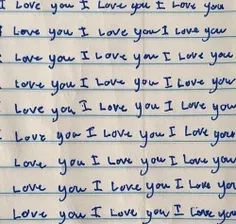 I Love you I Love you I Love you
I Love you I Love you I Love you
Love you I Love you I Love you
Love you I Love you I Love you
Love you, I Love you I Love you
Love you I Love you I Love you
Love you I Love you I Love you
Love you I Love you I Love you
Love you I Love you I Love you